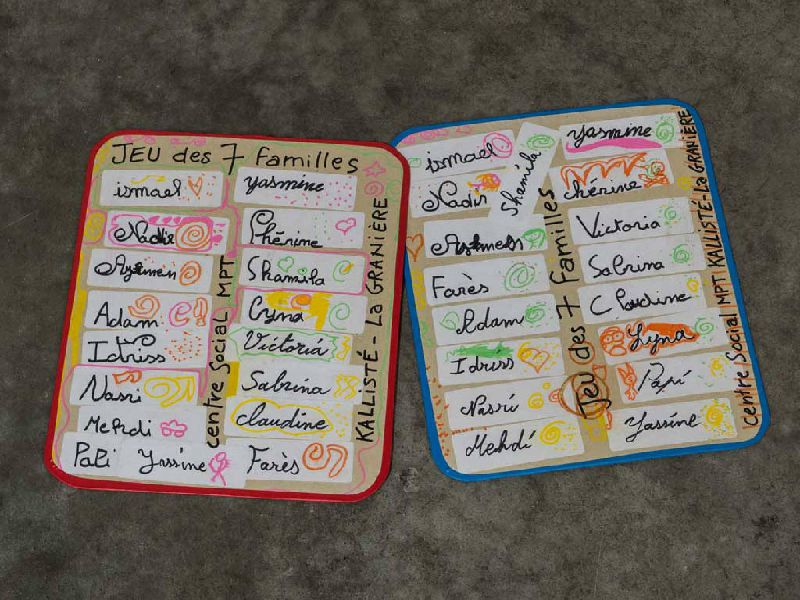 JEU des 7 Familles
ismael
yasmine
Nadir
Phérine
Aymen
Shamila
Adam
Cyna
Idriss
Victoria
Nasri
Sabrina
Mehdi
claudine
Pati Yassine
Farès
centre Social MPT
KALLISTÉ - La GRANIÈRE
ismael
Shamila
yasmine
Nadir
chérine
Aymen
Victoria
Farès
Sabrina
Adam
Claudine
Idriss
Lyna
Nasri
Pari
Mehdi
Yassine
Jeu des 7 Familles
centre Social MPT KALLISTÉ - La GRANIÈRE